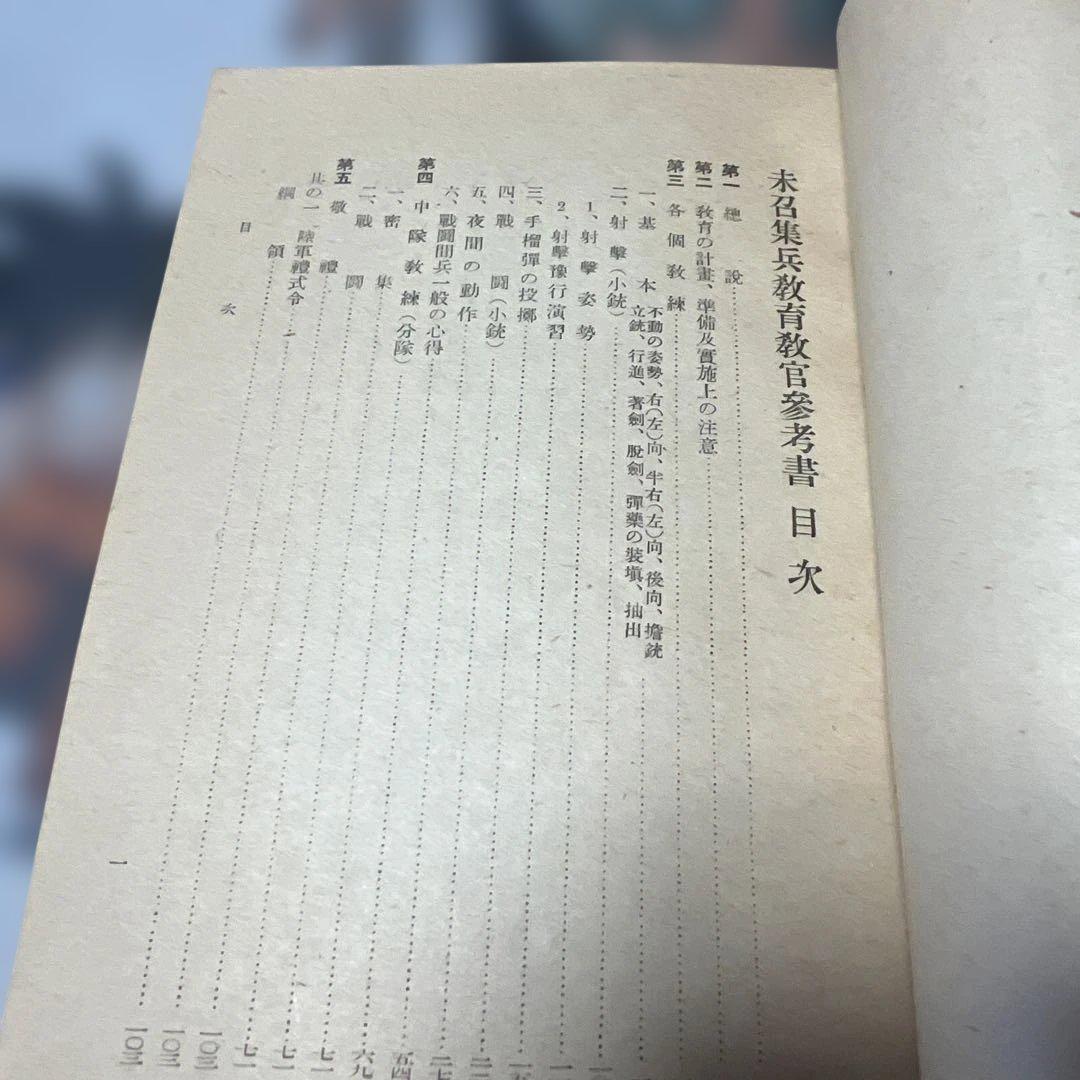 未召集兵教育教官參考書 目次
第一 總說
第二 教育の計畫、準備及實施上の注意
第三 各個教練
一、基本
不動の姿勢、右(左)向、半右(左)向、後向、擔銃
立銃、行進、著劍、脫劍、彈藥の裝塡、抽出
二、射擊(小銃)
1、射擊姿勢
2、射擊豫行演習
三、手榴彈の投擲
四、戰鬪(小銃)
五、夜間の動作 二七
六、戰鬪間兵一般の心得 五四
第四 中隊教練(分隊) 六九
一、密集 七一
二、戰鬪 七一
第五 敬禮 一〇三
其の一 陸軍禮式令 一〇三
綱領 一〇三
目次
一